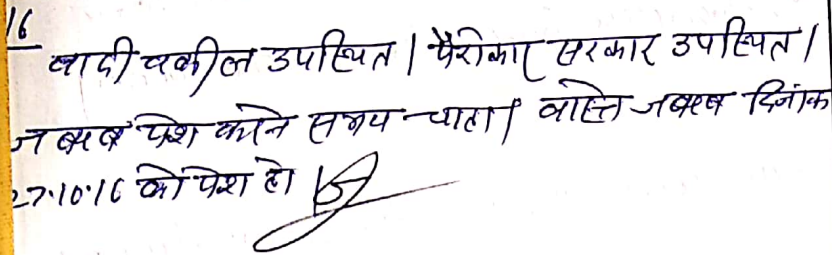 16
वादी वकील उपस्थित । पैरोकार सरकार उपस्थित ।
जबाब पेश करने समय चाहा । वास्ते जबाब दिनांक
27.10.16 को पेश हो